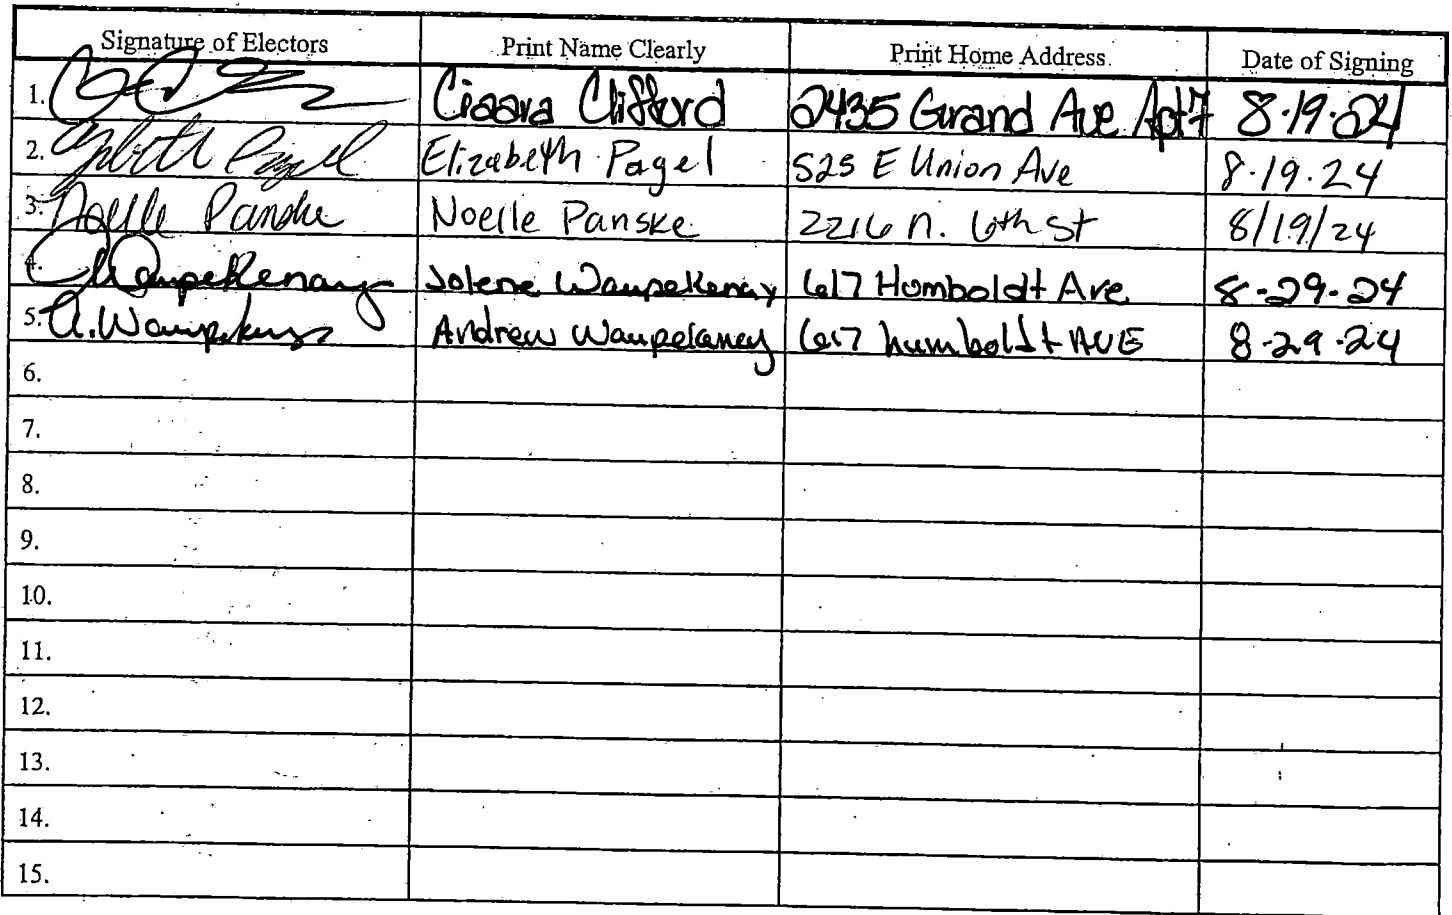 Signature of Electors Print Name Clearly Print Home Address Date of Signing
1. Ciaara Clifford 2435 Grand Ave Apt 7 8.19.24
2. Elizabeth Pagel Elizabeth Pagel 525 E Union Ave 8.19.24
3. Noelle Panske Noelle Panske 2216 N. 6th St 8/19/24
4. JWaupekenay Jolene Waupekenay 617 Homboldt Ave 8-29-24
5. A. Waupekenay Andrew Waupekaney 617 humboldt AVE 8-29-24
6.
7.
8.
9.
10.
11.
12.
13.
14.
15.